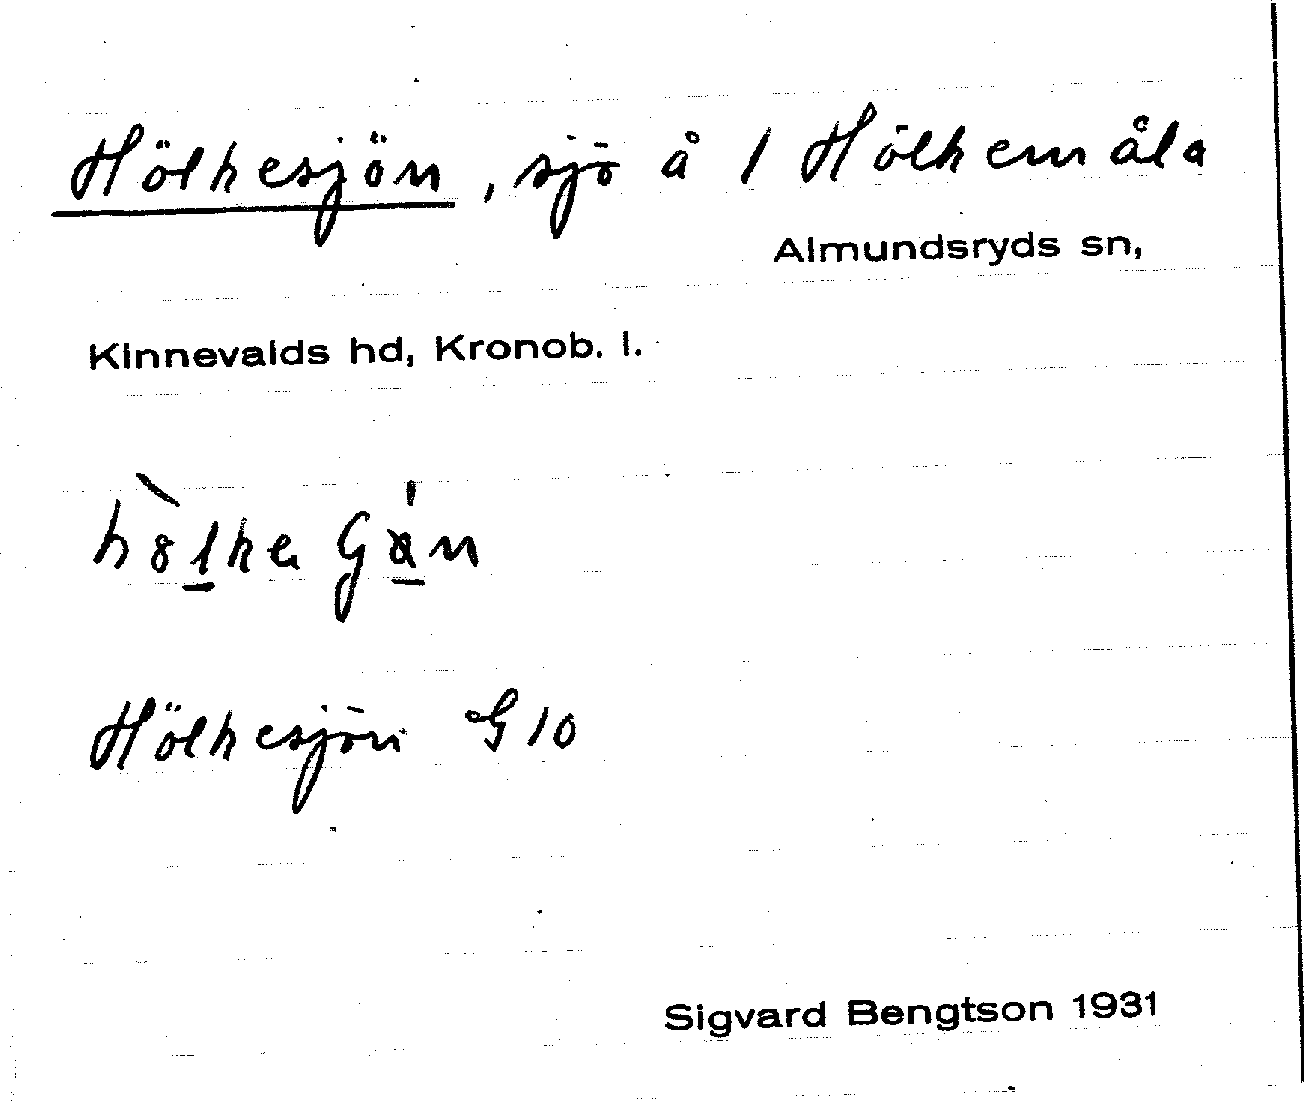 Hölkesjön, sjö å 1 Hölkemåla
Almundsryds sn,
Kinnevalds hd, Kronob. l.
Hölkesjön G 10
Sigvard Bengtson 1931